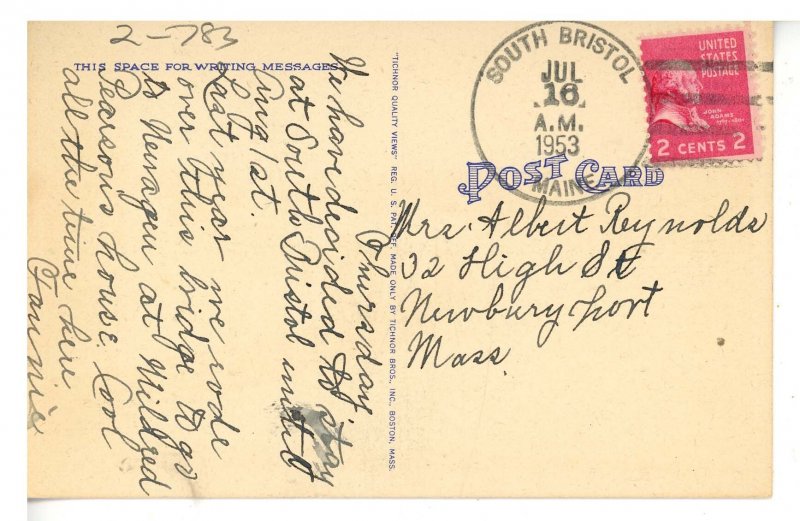 2-783
THIS SPACE FOR WRITING MESSAGES
Thursday
We have decided to stay
at South Bristol until
Aug 1st.
Last year we rode
over this bridge to go
to Newagen at Mildred
Pearsons house. Cool
all the time here
Fannie
"TICHNOR QUALITY VIEWS" REG. U. S. PAT. OFF. MADE ONLY BY TICHNOR BROS., INC., BOSTON, MASS.
SOUTH BRISTOL
JUL
16
A.M.
1953
MAINE
UNITED
STATES
POSTAGE
JOHN
ADAMS
2 CENTS 2
POST CARD
Mrs. Albert Reynolds
32 High St
Newburyport
Mass.